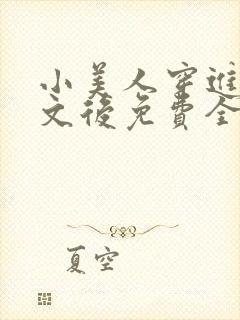 小美人穿進
文後免費全
夏空